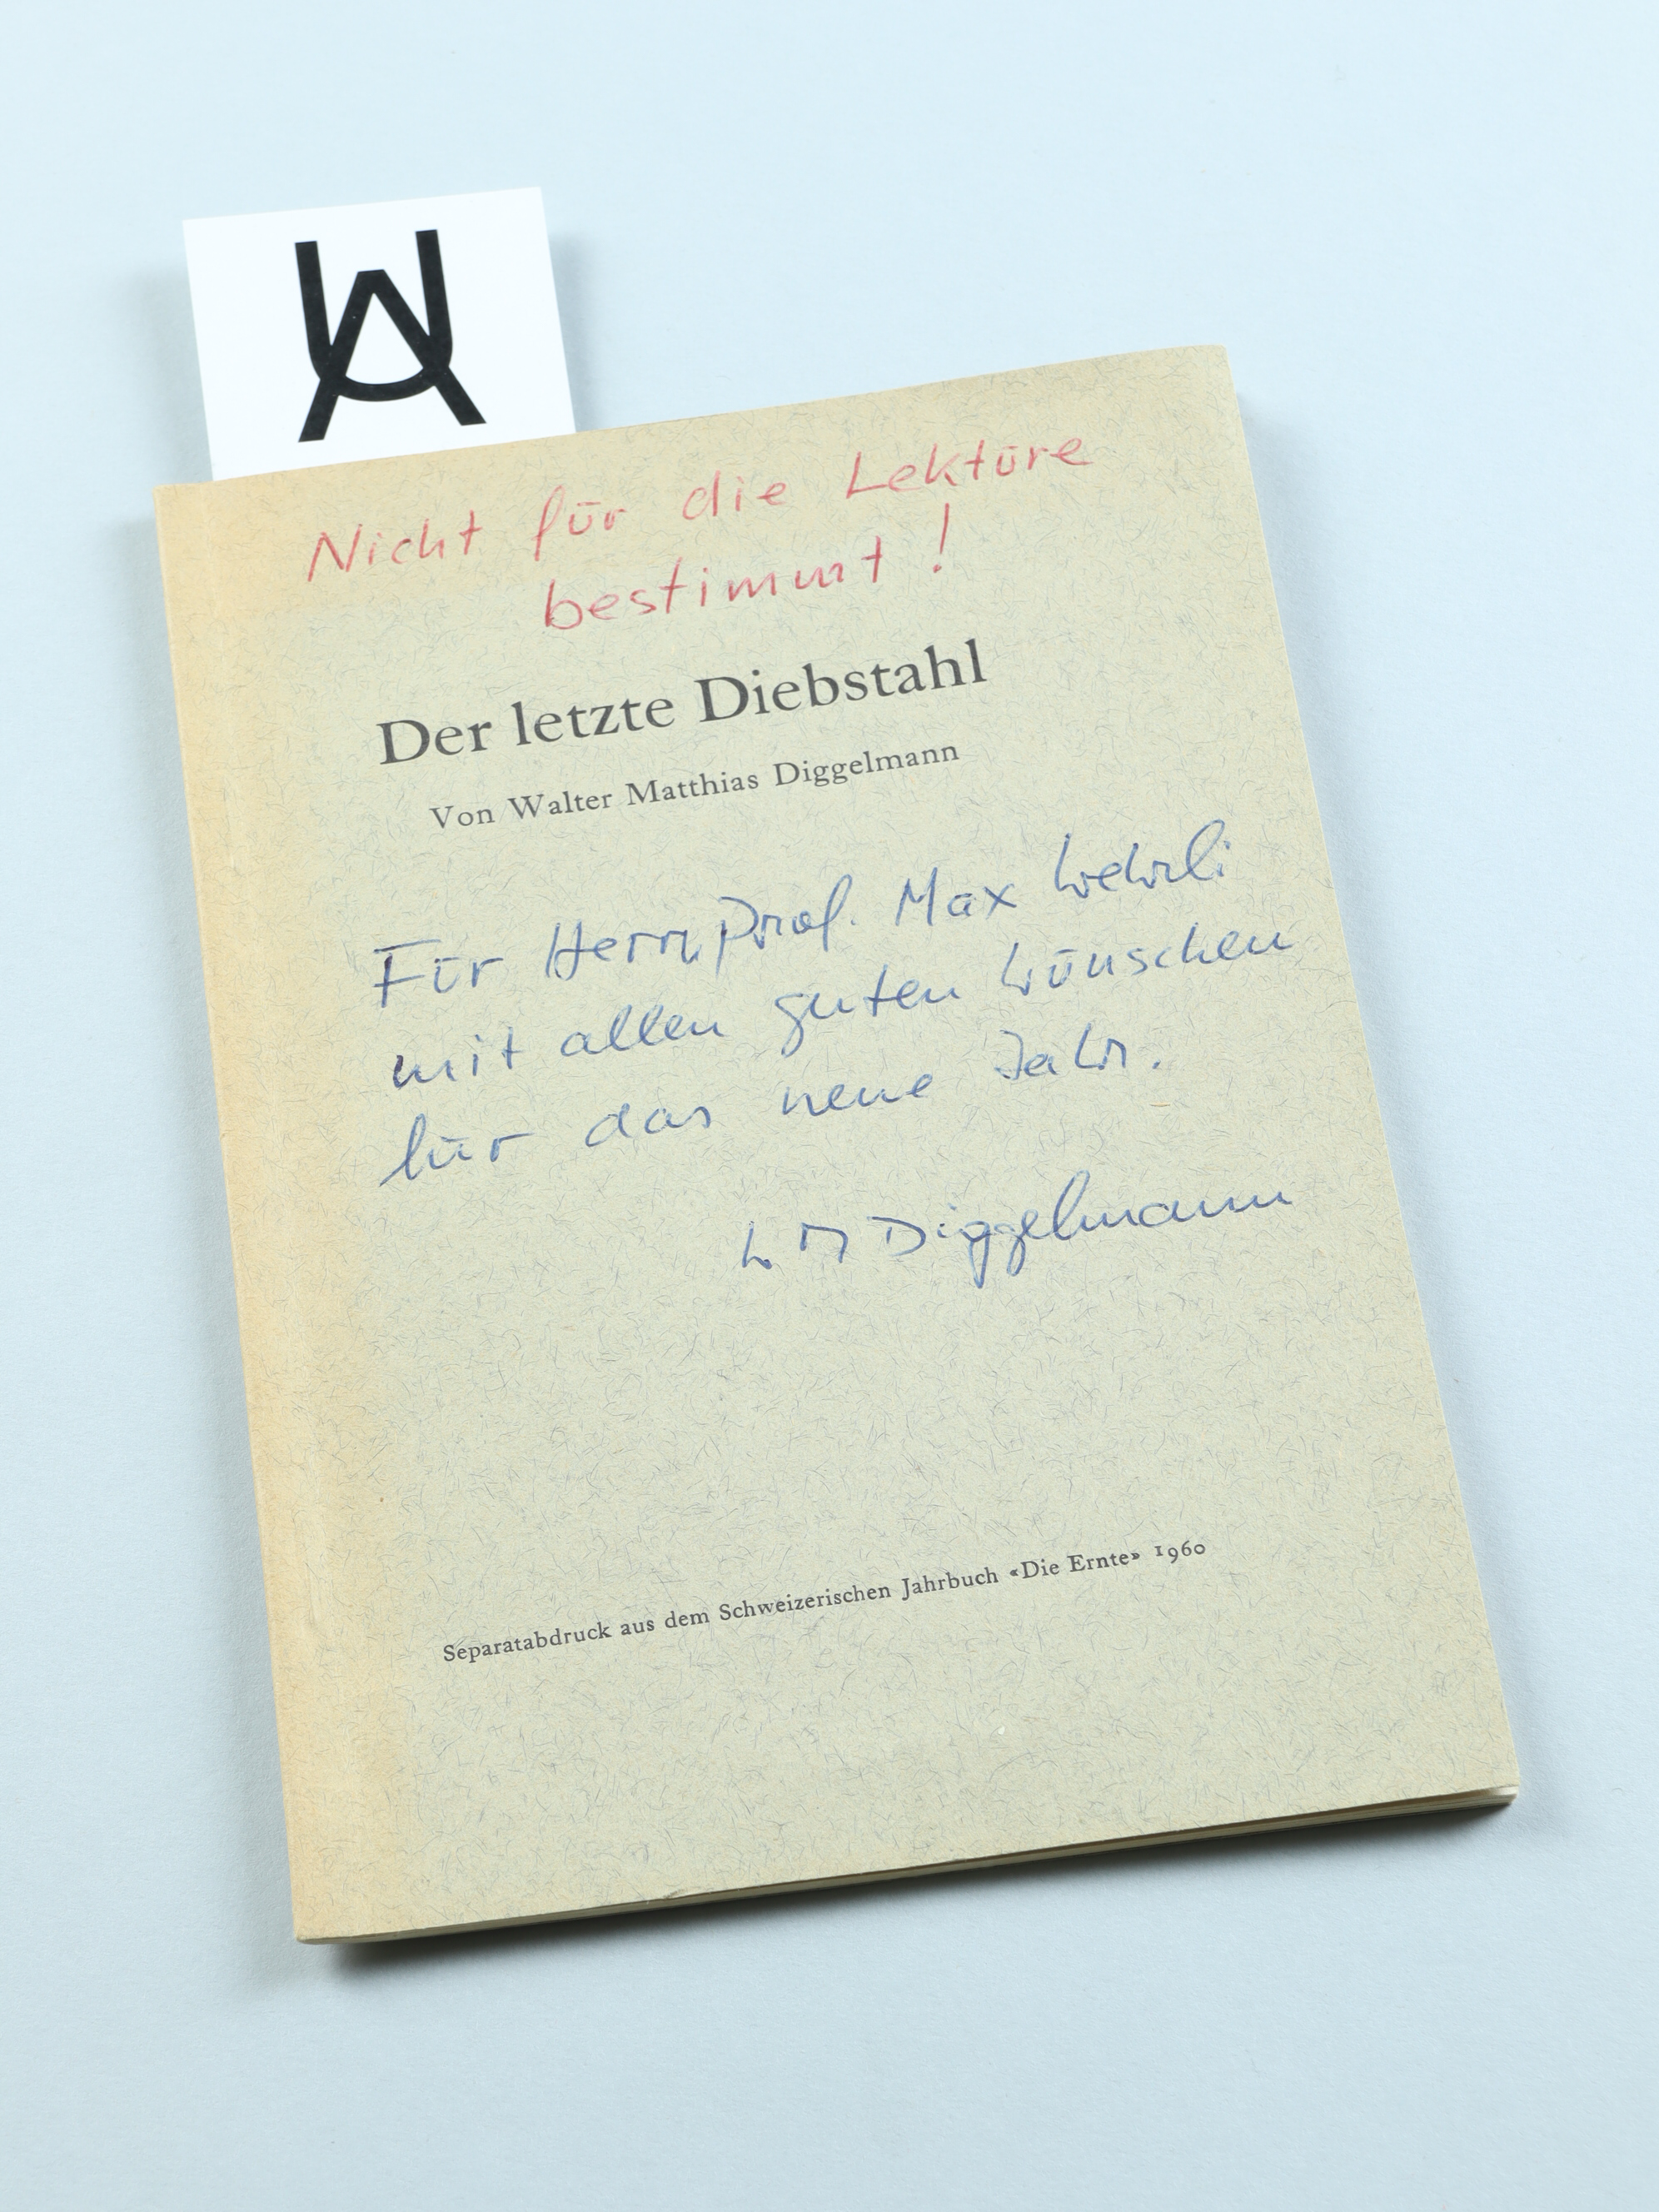 Nicht für die Lektüre
bestimmt !
Der letzte Diebstahl
Von Walter Matthias Diggelmann
Für Herrn Prof. Max Wehrli
mit allen guten Wünschen
für das neue Jahr.
W M Diggelmann
Separatabdruck aus dem Schweizerischen Jahrbuch «Die Ernte» 1960